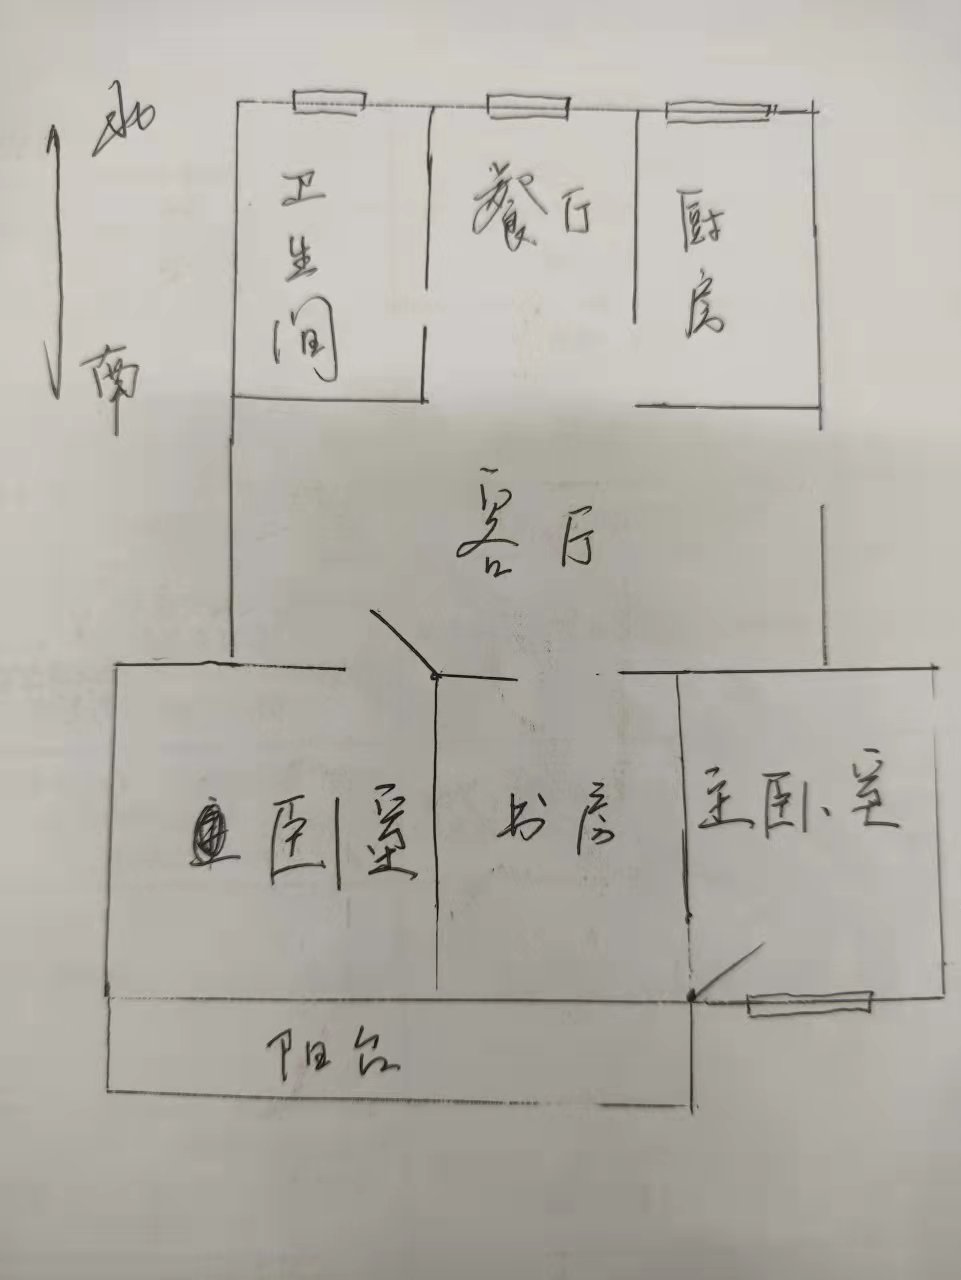 北
南
卫生间
餐厅
厨房
客厅
卧室
书房
主卧室
阳台